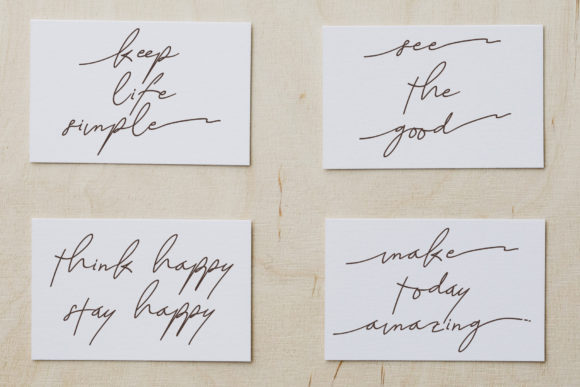 keep
life
simple
see
the
good
think happy
stay happy
make
today
amazing